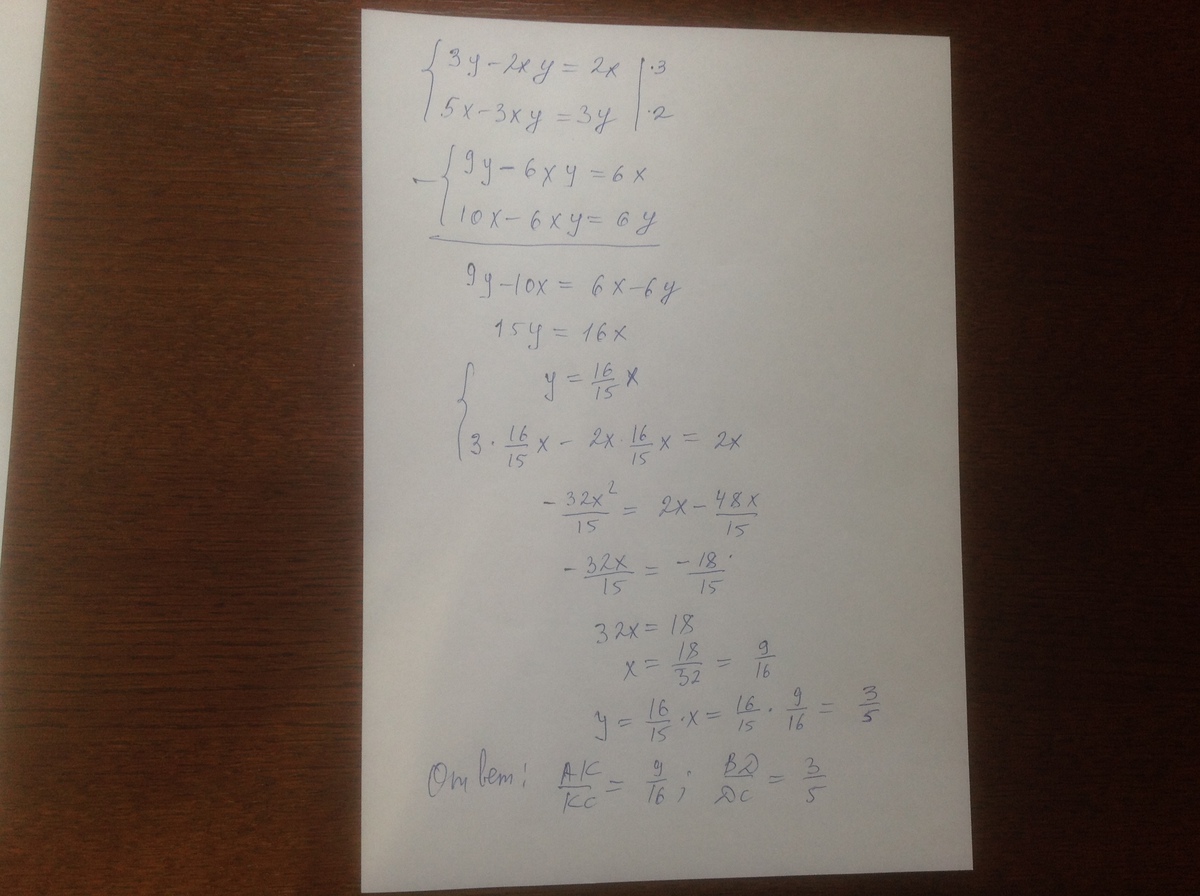 { 3y - 2xy = 2x | ·3
5x - 3xy = 3y | ·2
- { 9y - 6xy = 6x
10x - 6xy = 6y
9y - 10x = 6x - 6y
15y = 16x
{ y = 16/15 x
3 · 16/15 x - 2x · 16/15 x = 2x
- 32x²/15 = 2x - 48x/15
- 32x/15 = - 18/15
32x = 18
x = 18/32 = 9/16
y = 16/15 · x = 16/15 · 9/16 = 3/5
Ответ: AK/KC = 9/16 ; BD/DC = 3/5